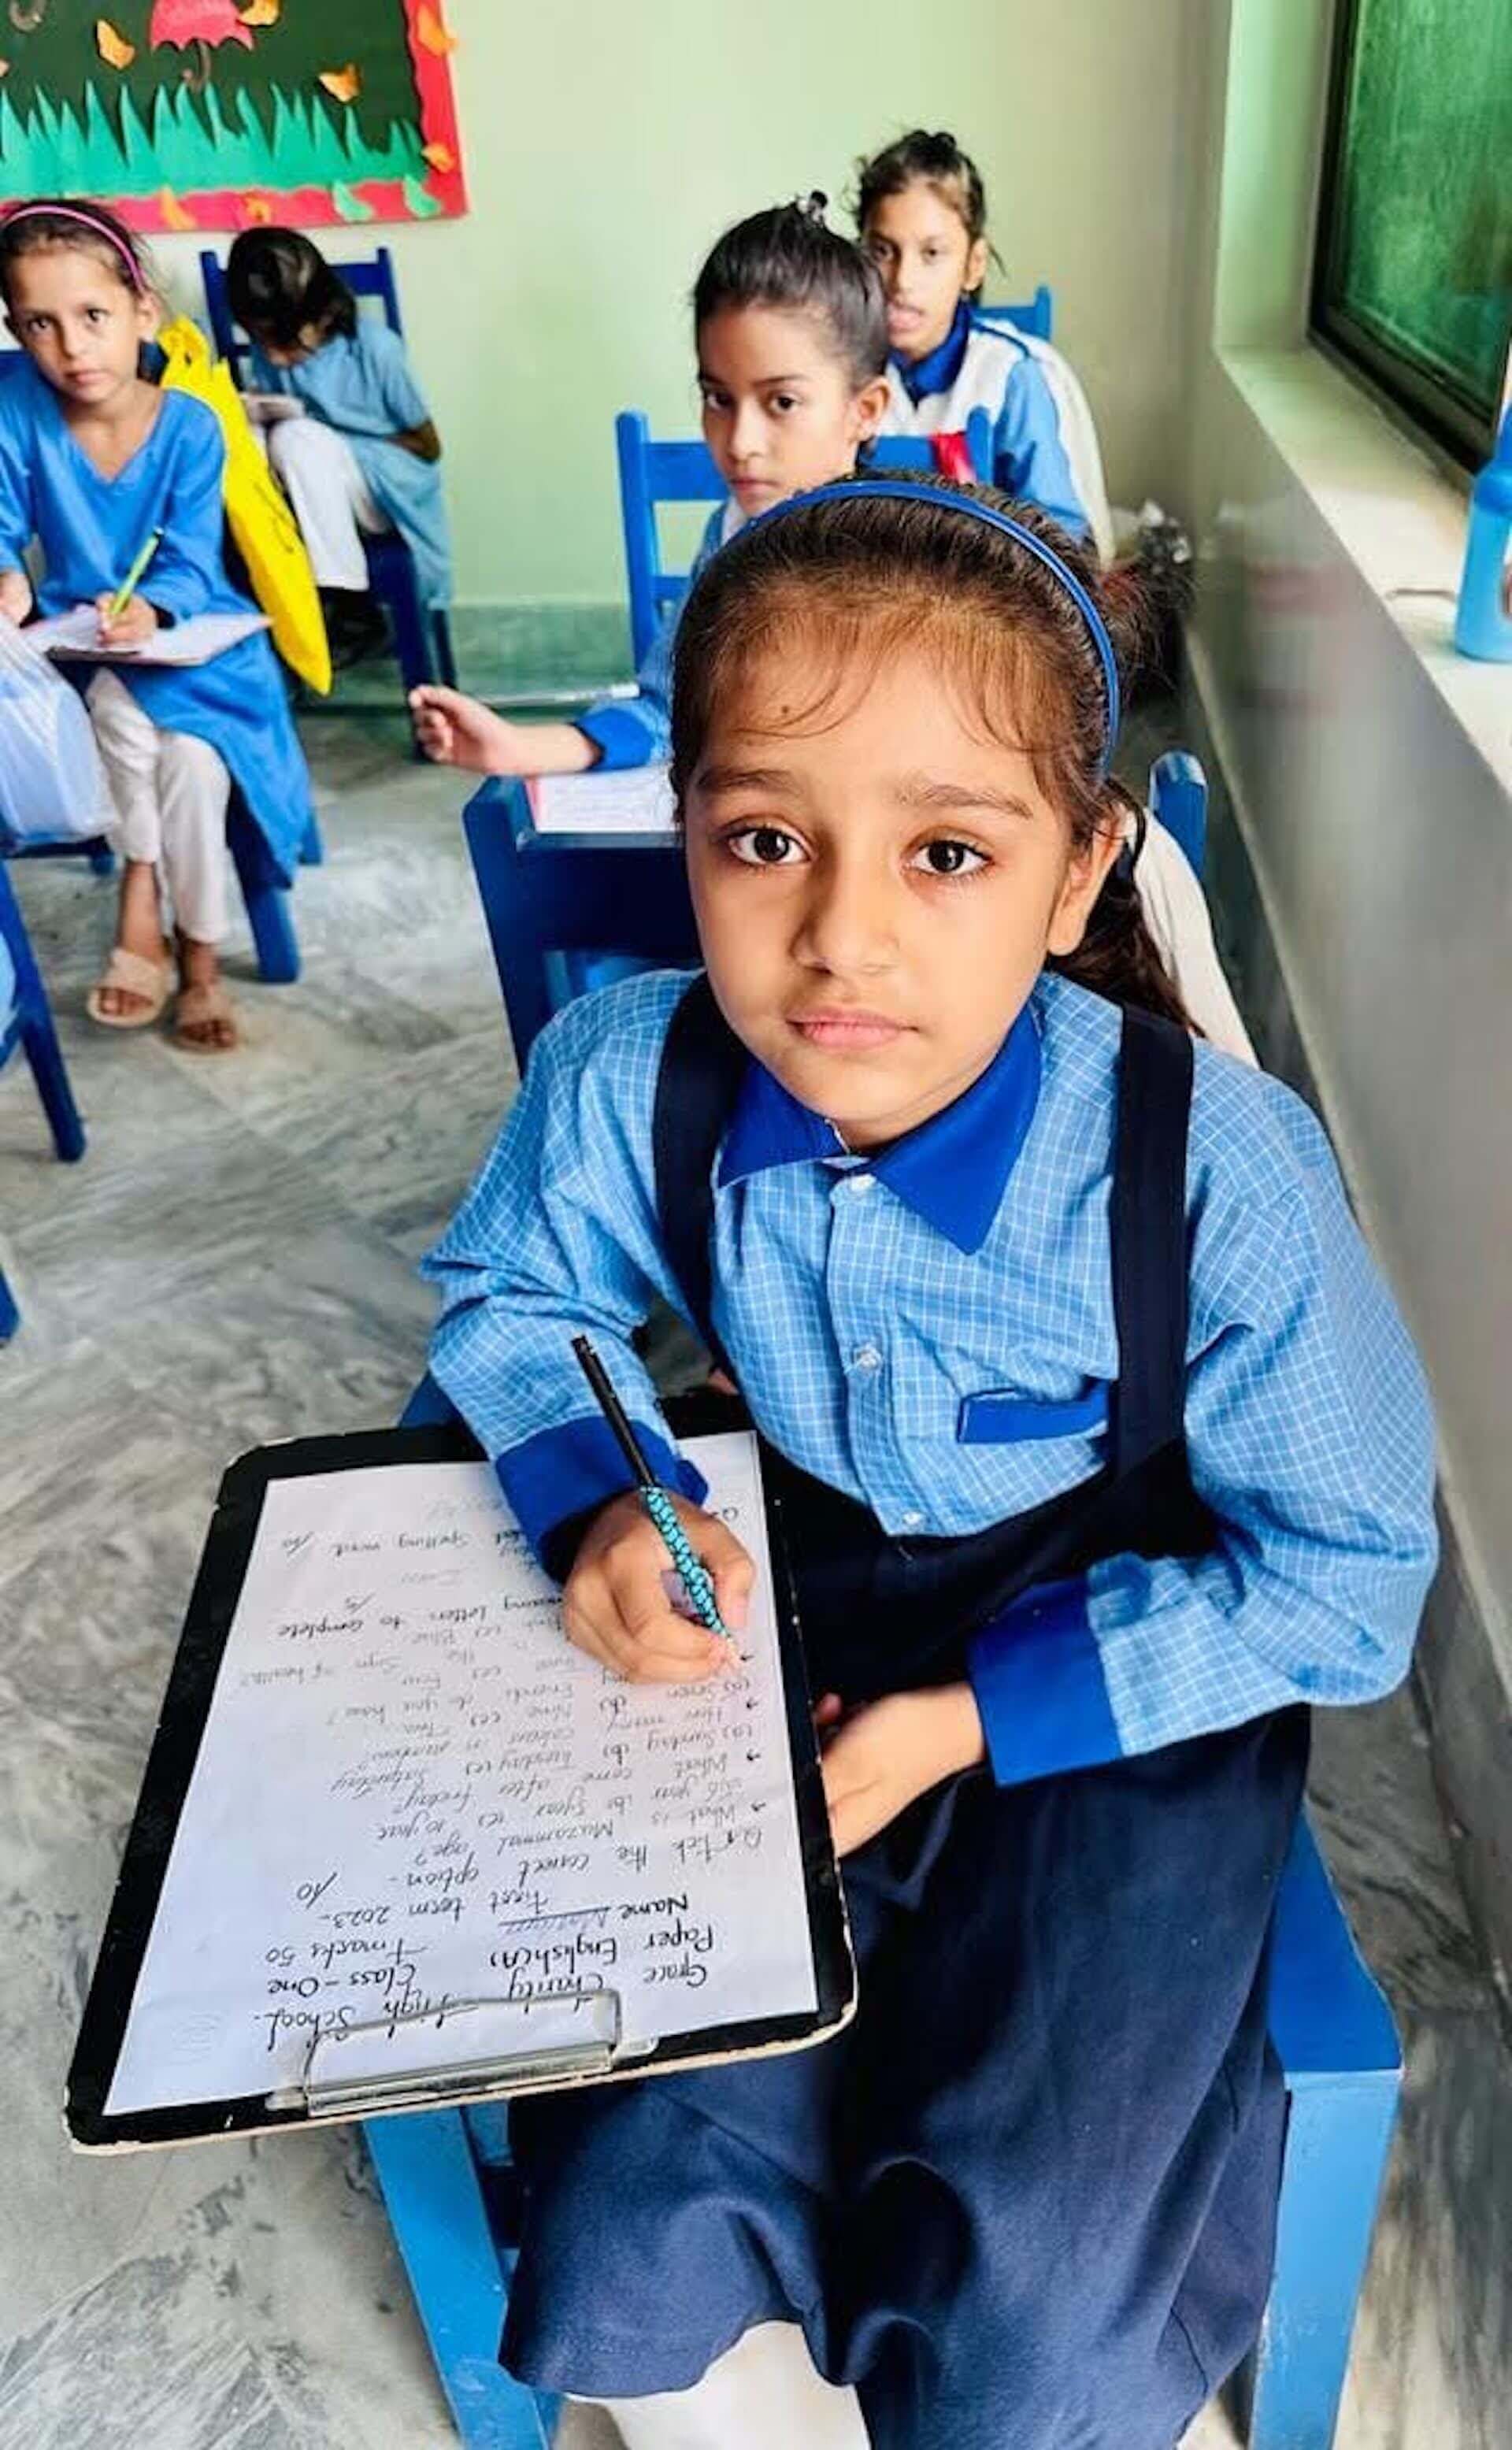 Grace Charity High School.
Paper English(A) Class-One
Name Tmarks 50
First term 2023-
Q1 Tick the correct option- /10
→ What is Muzammal age?
6 year (b) 5 year (c) 10 year
→ What come after friday?
(a) Sunday (b) Tuesday (c) Saturday
→ How many colours in rainbow?
(a) Seven (b) Nine (c) Two
Friends do you have?
(c) Four
is the Sign of health?
(c) Blue
missing letters to complete /5
Spelling word. /10